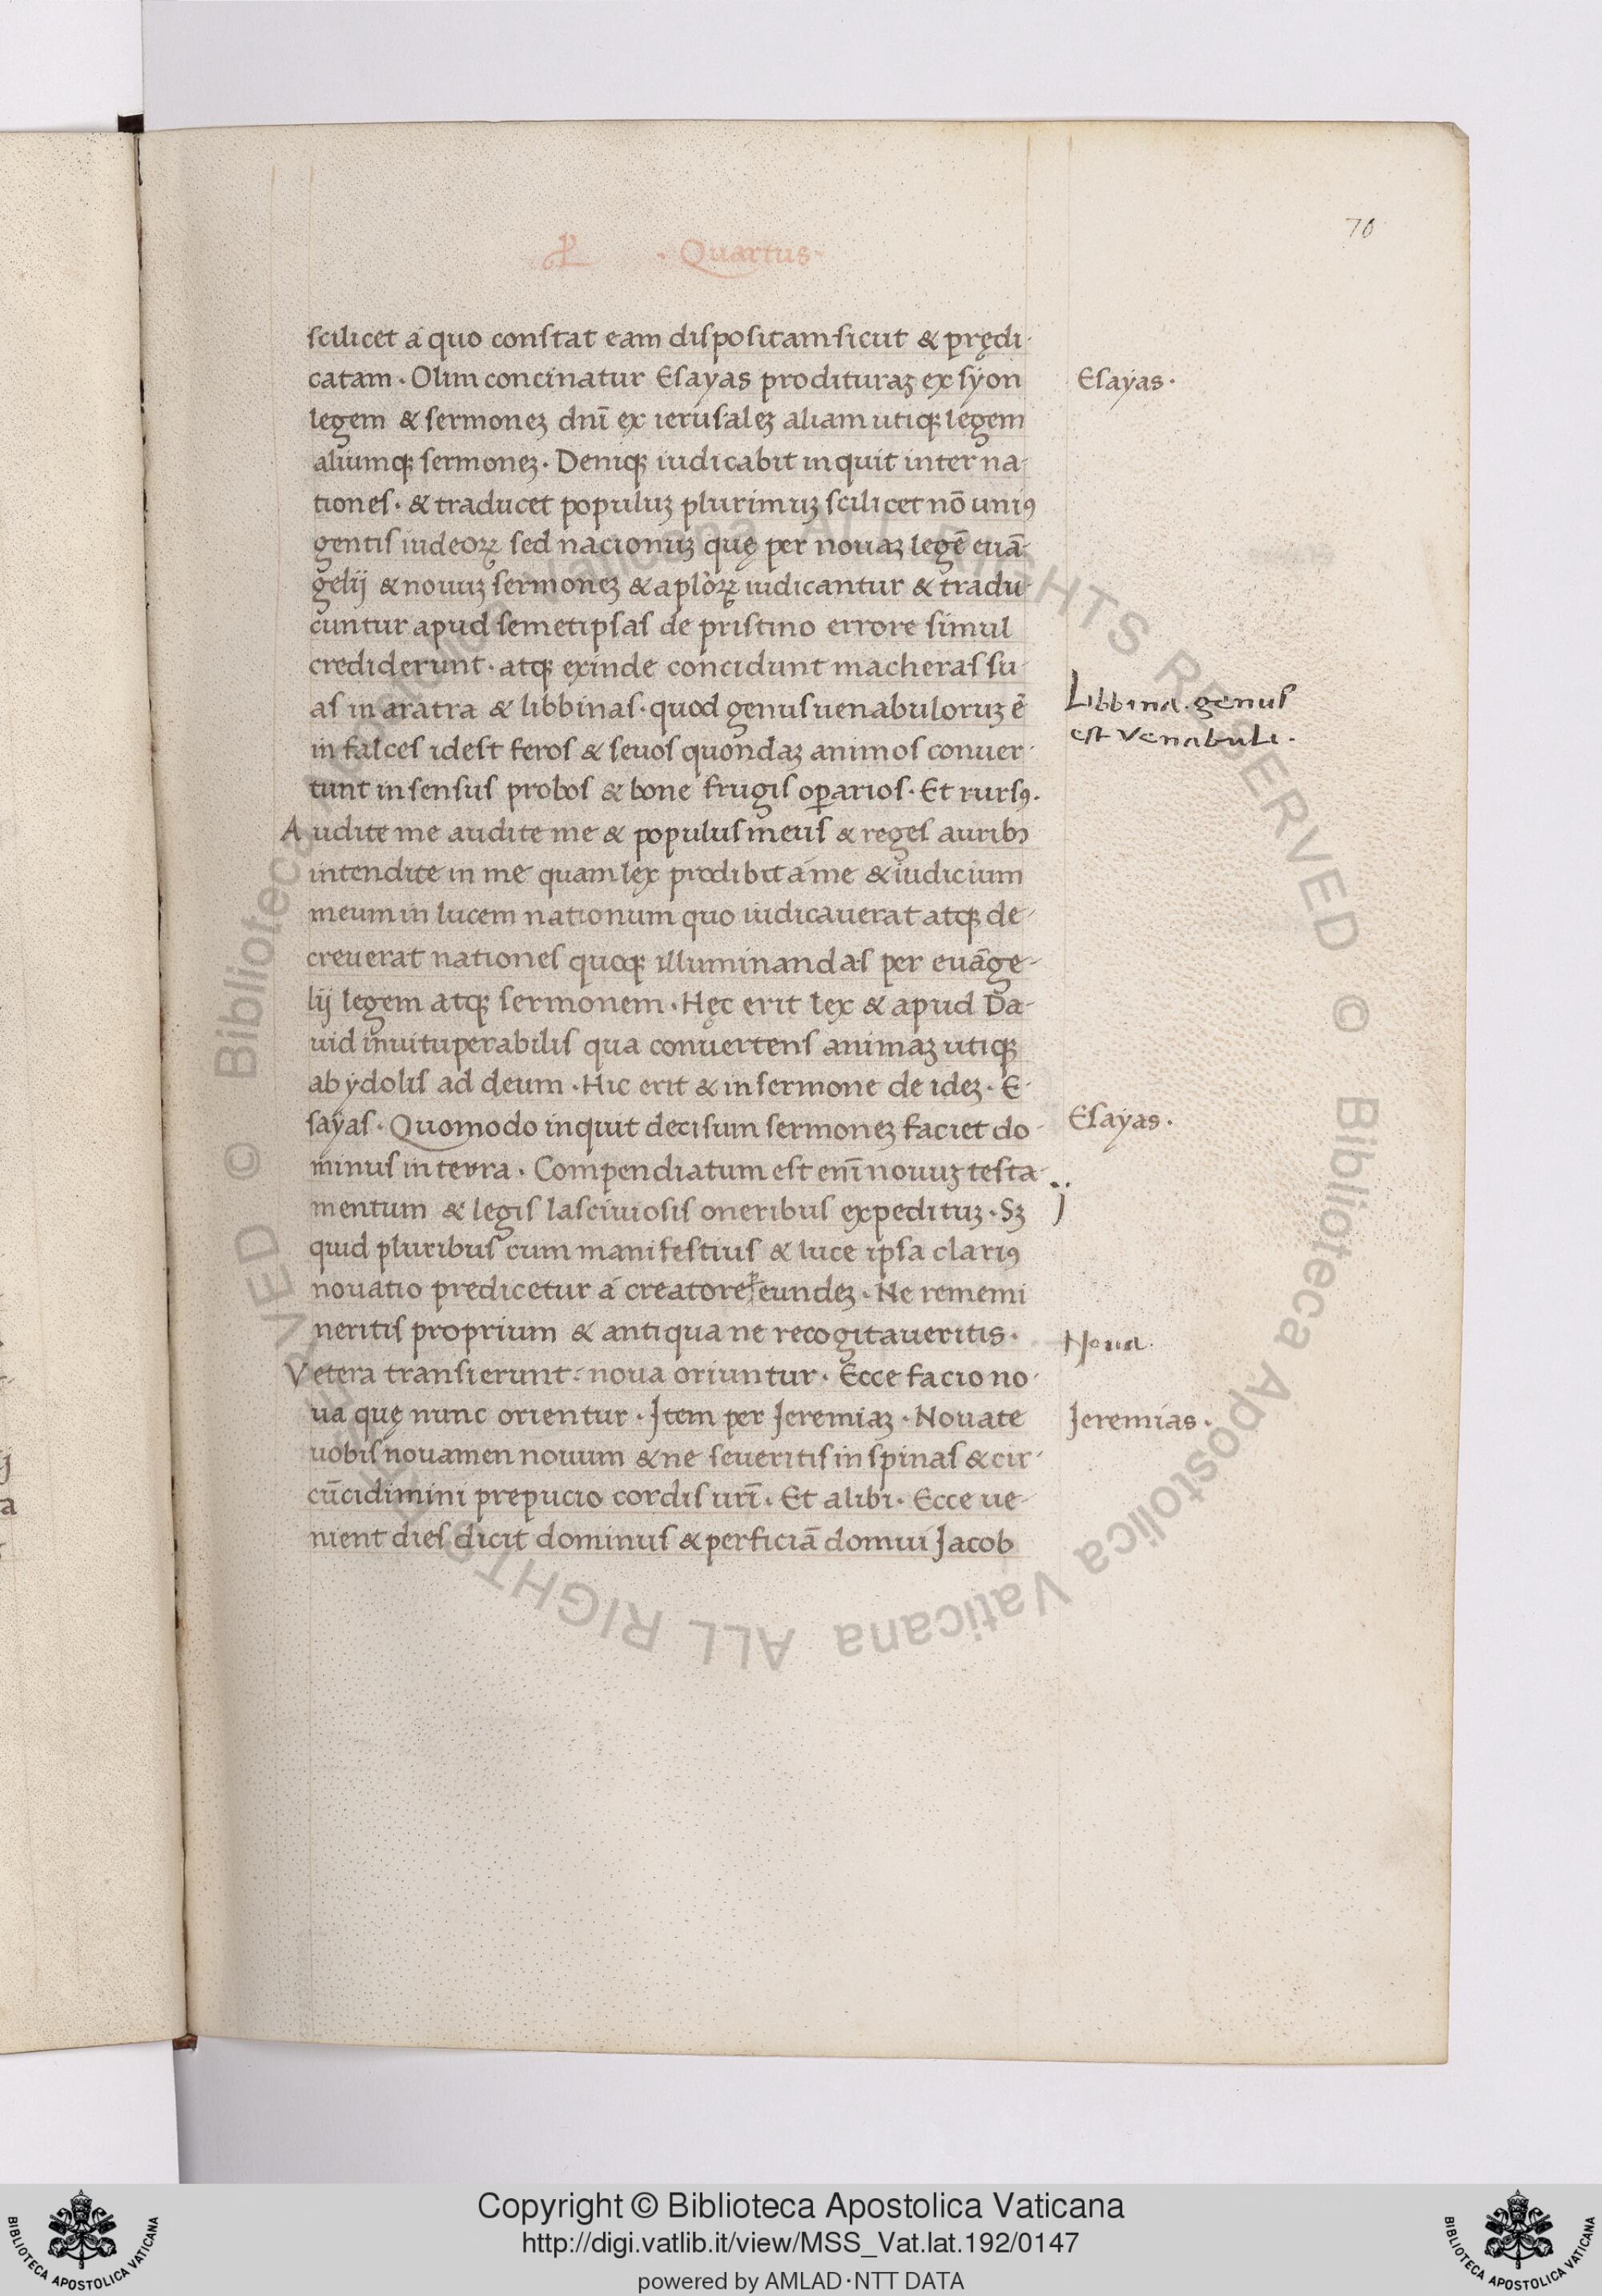 70
· Quartus ·
scilicet a quo constat eam dispositam sicut & prędi-
catam · Olim concinatur Esayas prodituraꝫ ex syon
legem & sermoneꝫ dn̄i ex ierusaleꝫ aliam utiqꝫ legem
aliumqꝫ sermoneꝫ · Deniqꝫ iudicabit inquit inter na-
tiones · & traducet populuꝫ plurimuꝫ scilicet nō uniꝰ
gentis iudeoꝝ sed nacionuꝫ quę per nouaꝫ legē euā-
gelij & nouuꝫ sermoneꝫ & apl̓oꝝ iudicantur & tradu-
cuntur apud semetipsas de pristino errore simul
crediderunt · atqꝫ exinde concidunt macheras su-
as in aratra & libbinas · quod genus uenabuloruꝫ ē
in falces idest feros & seuos quondaꝫ animos conuer-
tunt in sensus probos & bone frugis oꝑarios · Et rursꝰ.
Audite me audite me & populus meus & reges auribꝫ
intendite in me quam lex prodibit a me & iudicium
meum in lucem nationum quo iudicauerat atqꝫ de-
creuerat nationes quoqꝫ illuminandas per euāge-
lij legem atqꝫ sermonem · Hęc erit lex & apud Da-
uid inuituperabilis qua conuertens animaꝫ utiqꝫ
ab ydolis ad deum · Hic erit & in sermone de ideꝫ · E-
sayas · Quomodo inquit decisum sermoneꝫ faciet do-
minus in terra · Compendiatum est enī nouuꝫ testa-
mentum & legis lasciuiosis oneribus expedituꝫ · Sꝫ
quid pluribus cum manifestius & luce ipsa clariꝰ
nouatio predicetur a creatore ꝑ eundeꝫ · Ne rememi
neritis proprium & antiqua ne recogitaueritis ·
Vetera transierunt · noua oriuntur · Ecce facio no-
ua quę nunc orientur · Item per Jeremiaꝫ · Nouate
uobis nouamen nouum & ne seueritis in spinas & cir-
cūcidimini prepucio cordis ur̄i · Et alibi · Ecce ue-
nient dies dicit dominus & perficiā domui Jacob
Esayas ·
Libbina · genus
est venabuli ·
Esayas ·
Noua
Jeremias ·
© Biblioteca Apostolica Vaticana ALL RIGHTS RESERVED © Biblioteca Apostolica Vaticana ALL RIGHTS RESERVED
Copyright © Biblioteca Apostolica Vaticana
http://digi.vatlib.it/view/MSS_Vat.lat.192/0147
powered by AMLAD·NTT DATA
BIBLIOTECA APOSTOLICA VATICANA
BIBLIOTECA APOSTOLICA VATICANA